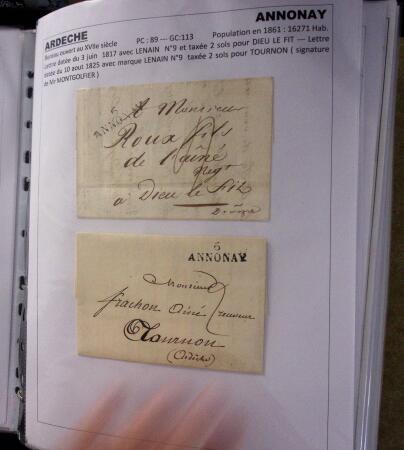 ARDECHE ANNONAY
Bureau ouvert au XVIIe siècle PC : 89 --- GC:113 Population en 1861 : 16271 Hab.
Lettre datée du 3 juin 1817 avec LENAIN N°9 et taxée 2 sols pour DIEU LE FIT --- Lettre
datée du 10 aout 1825 avec marque LENAIN N°9 taxée 2 sols pour TOURNON ( signature
de Mr MONTGOLFIER )
6
ANNONAY
A Monsieur
Roux fils
de l'aîné
Negt
a Dieu le Fit
Drôme
6
ANNONAY
Monsieur
frachon ainé receveur
Tournon
(Ardèche)